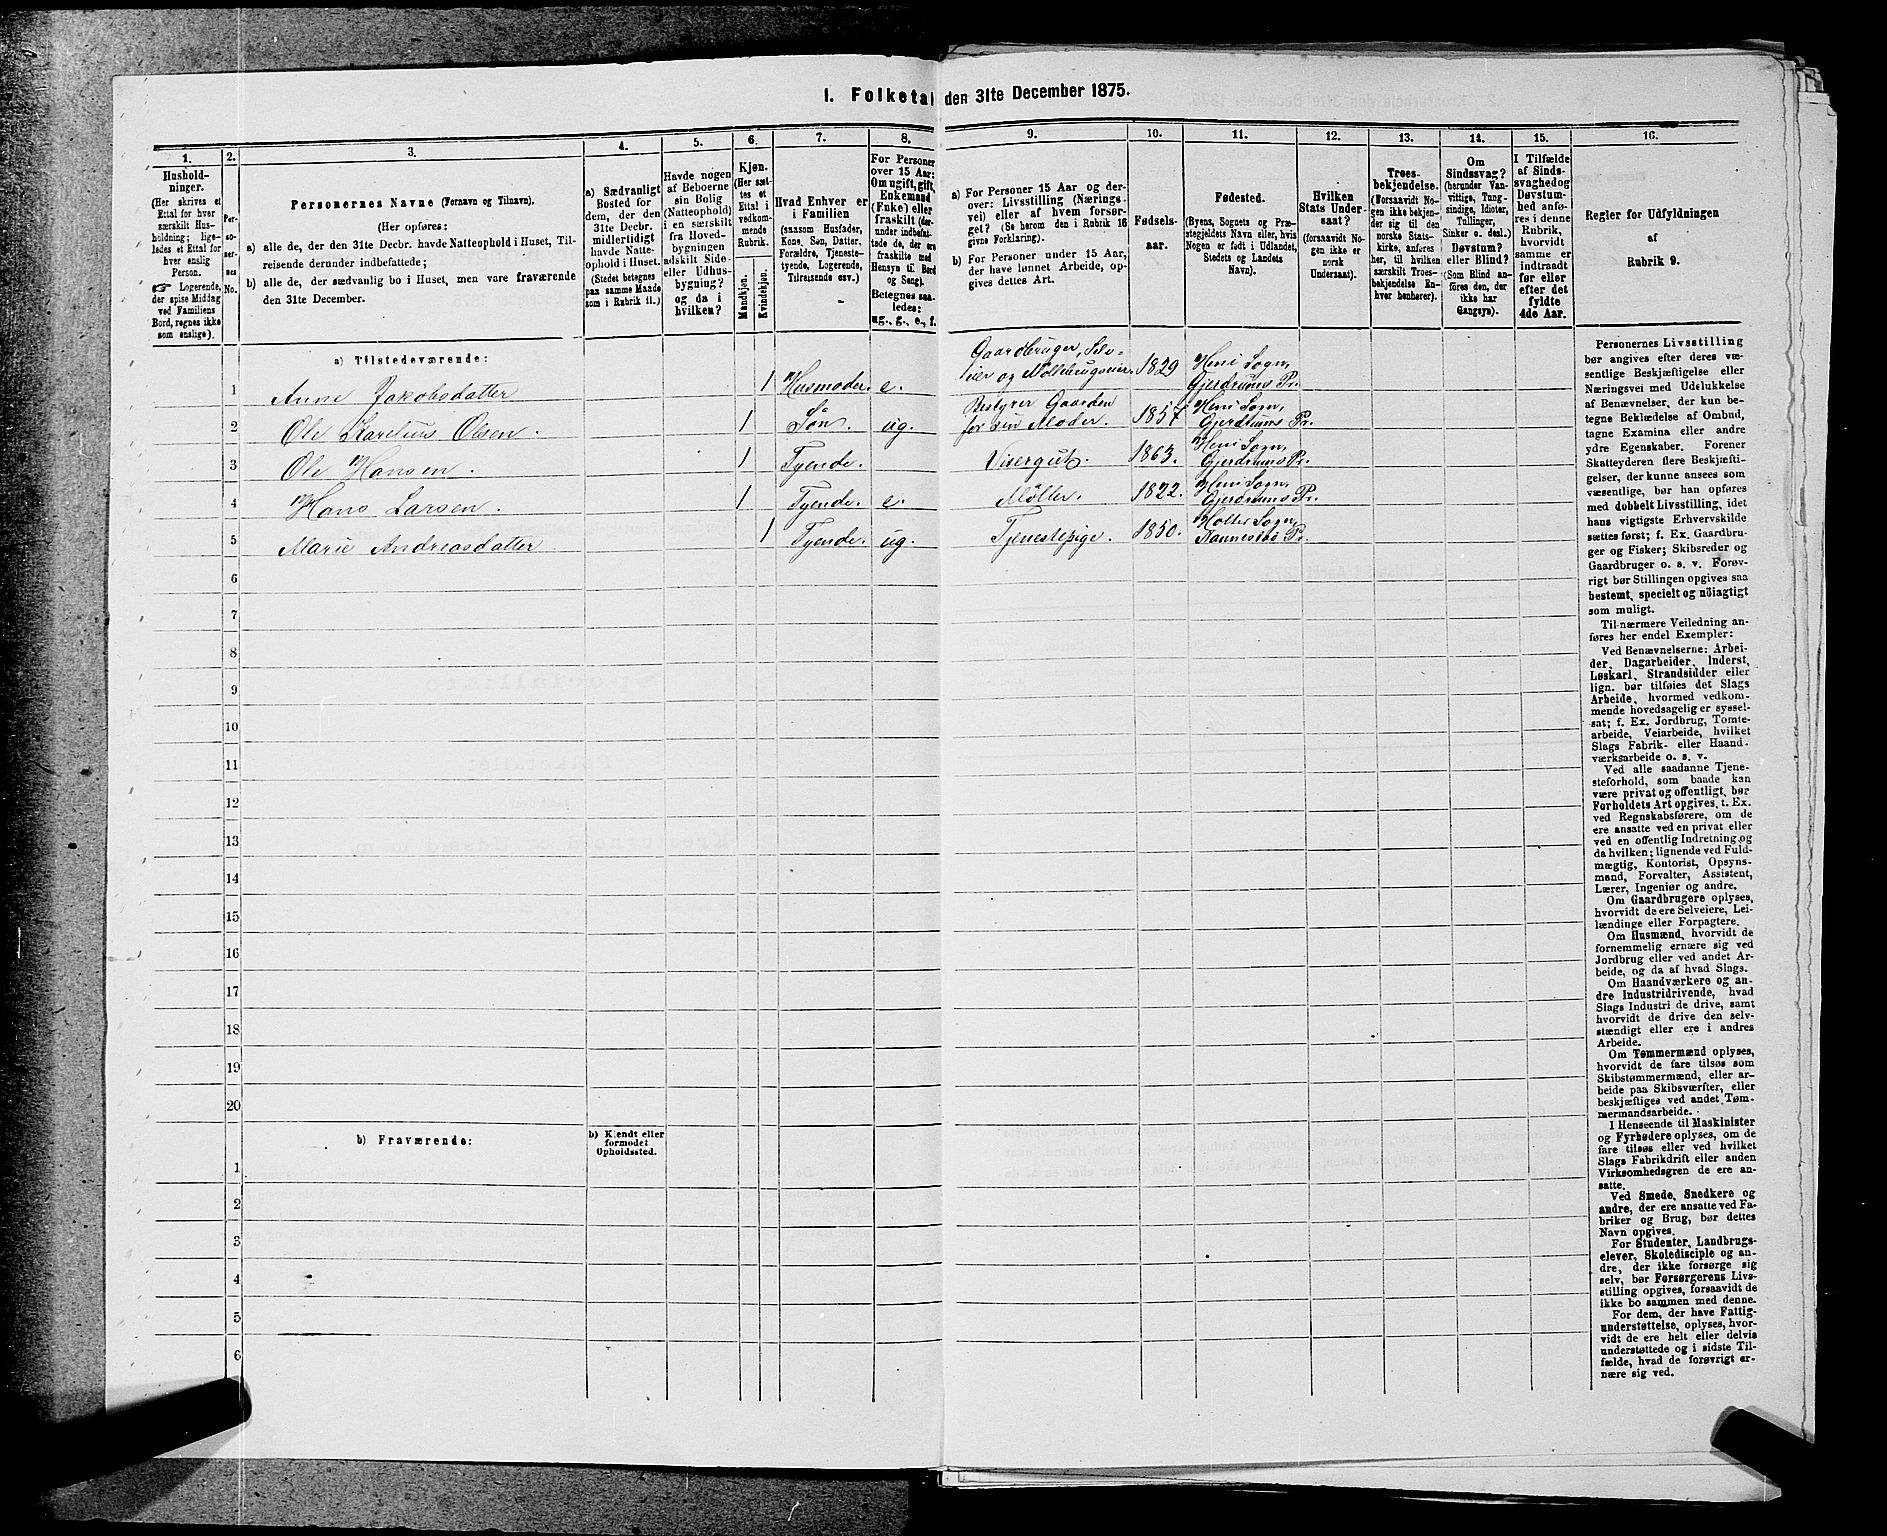 1. Folketal den 31te December 1875.
1.
Hushold-
ninger.
(Her skrives et
Ettal for hver
særskilt Hus-
holdning; lige-
ledes et Ettal for
hver enslig
Person.
☞ Logerende,
der spise Middag
ved Familiens
Bord, regnes ikke
som enslige).
2.
Per-
so-
ner-
nes
No.
3.
Personernes Navne (Fornavn og Tilnavn),
(Her opføres:
a) alle de, der den 31te Decbr. havde Natteophold i Huset, Til-
reisende derunder indbefattede;
b) alle de, der sædvanlig bo i Huset, men vare fraværende
den 31te December.
4.
a) Sædvanligt
Bosted for
dem, der den
31te Decbr.
midlertidigt
havde Natte-
ophold i Huset.
(Stedet betegnes
paa samme Maade
som i Rubrik 11.)
5.
Havde nogen
af Beboerne
sin Bolig
(Natteophold)
i en særskilt
fra Hoved-
bygningen
adskilt Side-
eller Udhus-
bygning?
og da i
hvilken?
6.
Kjøn.
(Her sæt-
tes et
Ettal i
vedkom-
mende
Rubrik.
Mandkjøn.
Kvindekjøn.
7.
Hvad Enhver er
i Familien
(saasom Husfader,
Kone, Søn, Datter,
Forældre, Tjeneste-
tyende, Logerende,
Tilreisende osv.)
8.
For Personer
over 15 Aar:
Om ugift, gift,
Enkemand
(Enke) eller
fraskilt (der-
under indbefat-
tede de, der ere
fraskilte med
Hensyn til Bord
og Seng).
Betegnes saa-
ledes:
ug., g., e., f.
9.
a) For Personer 15 Aar og der-
over: Livsstilling (Nærings-
vei) eller af hvem forsør-
get? (Se herom den i Rubrik 16
givne Forklaring).
b) For Personer under 15 Aar,
der have lønnet Arbeide, op-
gives dettes Art.
10.
Fødsels-
aar.
11.
Fødested.
(Byens, Sognets og Præ-
stegjeldets Navn eller, hvis
Nogen er født i Udlandet,
Stedets og Landets
Navn).
12.
Hvilken
Stats Under-
saat?
(forsaavidt No-
gen ikke er
norsk
Undersaat).
13.
Troes-
bekjendelse.
(Forsaavidt No-
gen ikke bekjen-
der sig til den
norske Stats-
kirke, anføres
her, til hvilken
særskilt Troes-
bekjendelse En-
hver henhører).
14.
Om
Sindssvag?
(herunder Van-
vittige, Tung-
sindige, Idioter,
Tullinger,
Sinker o. desl.)
Døvstum?
eller Blind?
(Som Blind an-
føres den, der
ikke har
Gangsyn).
15.
I Tilfælde
af Sinds-
svaghed og
Døvstum-
hed anfø-
res i denne
Rubrik,
hvorvidt
samme er
indtraadt
før eller
efter det
fyldte
4de Aar.
16.
Regler for Udfyldningen
af
Rubrik 9.
a) Tilstedeværende:
1 Anne Jakobsdatter 1 Husmoder. e. Gaardbruger, Selv-
eier og Møllebrugseier. 1829 Heni Sogn,
Gjerdrums Pr.
2 Ole Karelius Olsen. 1 Søn. ug. Bestyrer Gaarden
for sin Moder. 1857 Heni Sogn,
Gjerdrums Pr.
3 Ole Hansen. 1 Tyende. Visergut. 1863. Heni Sogn,
Gjerdrums Pr.
4 Hans Larsen. 1 Tyende. e. Møller. 1822. Heni Sogn,
Gjerdrums Pr.
5 Marie Andreasdatter 1 Tyende. ug. Tjenestepige. 1850. Holter Sogn,
Nannestad Pr.
6
7
8
9
10
11
12
13
14
15
16
17
18
19
20
b) Fraværende:
b) Kjendt eller
formodet
Opholdssted.
1
2
3
4
5
6
Personernes Livsstilling
bør angives efter deres væ-
sentlige Beskjæftigelse eller
Næringsvei med Udelukkelse
af Benævnelser, der kun be-
tegne Beklædelse af Ombud,
tagne Examina eller andre
ydre Egenskaber. Forener
Skatteyderen flere Beskjæfti-
gelser, der kunne ansees som
væsentlige, bør han opføres
med dobbelt Livsstilling, idet
hans vigtigste Erhvervskilde
sættes først; f. Ex. Gaardbru-
ger og Fisker; Skibsreder og
Gaardbruger o. s. v. Forøv-
rigt bør Stillingen opgives saa
bestemt, specielt og nöiagtigt
som muligt.
Til nærmere Veiledning an-
føres her endel Exempler:
Ved Benævnelserne: Arbei-
der, Dagarbeider, Inderst,
Løskarl, Strandsidder eller
lign. bør tilføies det Slags
Arbeide, hvormed vedkom-
mende hovedsagelig er syssel-
sat; f. Ex. Jordbrug, Tomte-
arbeide, Veiarbeide, hvilket
Slags Fabrik- eller Haand-
værksarbeide o. s. v.
Ved alle saadanne Tjene-
steforhold, som baade kan
være privat og offentligt, bør
Forholdets Art opgives, t. Ex.
ved Regnskabsførere, om de
ere ansatte ved en privat eller
ved en offentlig Indretning og
da hvilken; lignende ved Fuld-
mægtig, Kontorist, Opsyns-
mand, Forvalter, Assistent,
Lærer, Ingeniør og andre.
Om Gaardbrugere oplyses,
hvorvidt de ere Selveiere, Lei-
lændinge eller Forpagtere.
Om Husmænd, hvorvidt de
fornemmelig ernære sig ved
Jordbrug eller ved andet Ar-
beide, og da af hvad Slags.
Om Haandværkere og an-
dre Industridrivende, hvad
Slags Industri de drive, samt
hvorvidt de drive den selv-
stændigt eller ere i andres
Arbeide.
Om Tømmermænd oplyses,
hvorvidt de fare tilsøs som
Skibstømmermænd, eller ar-
beide paa Skibsværfter, eller
beskjæftiges ved andet Tøm-
mermandsarbeide.
I Henseende til Maskinister
og Fyrbødere oplyses, om de
fare tilsøs eller ved hvilket
Slags Fabrikdrift eller anden
Virksomhedsgren de ere an-
satte.
Ved Smede, Snedkere og
andre, der ere ansatte ved Fa-
briker og Brug, bør dettes
Navn opgives.
For Studenter, Landbrugs-
elever, Skoledisciple og an-
dre, der ikke forsørge sig
selv, bør Forsørgerens Livs-
stilling opgives, forsaavidt de
ikke bo sammen med denne.
For dem, der have Fattig-
understøttelse, oplyses, hvor-
vidt de ere helt eller delvis
understøttede og i sidste Til-
fælde, hvad de forøvrigt er-
nære sig ved.